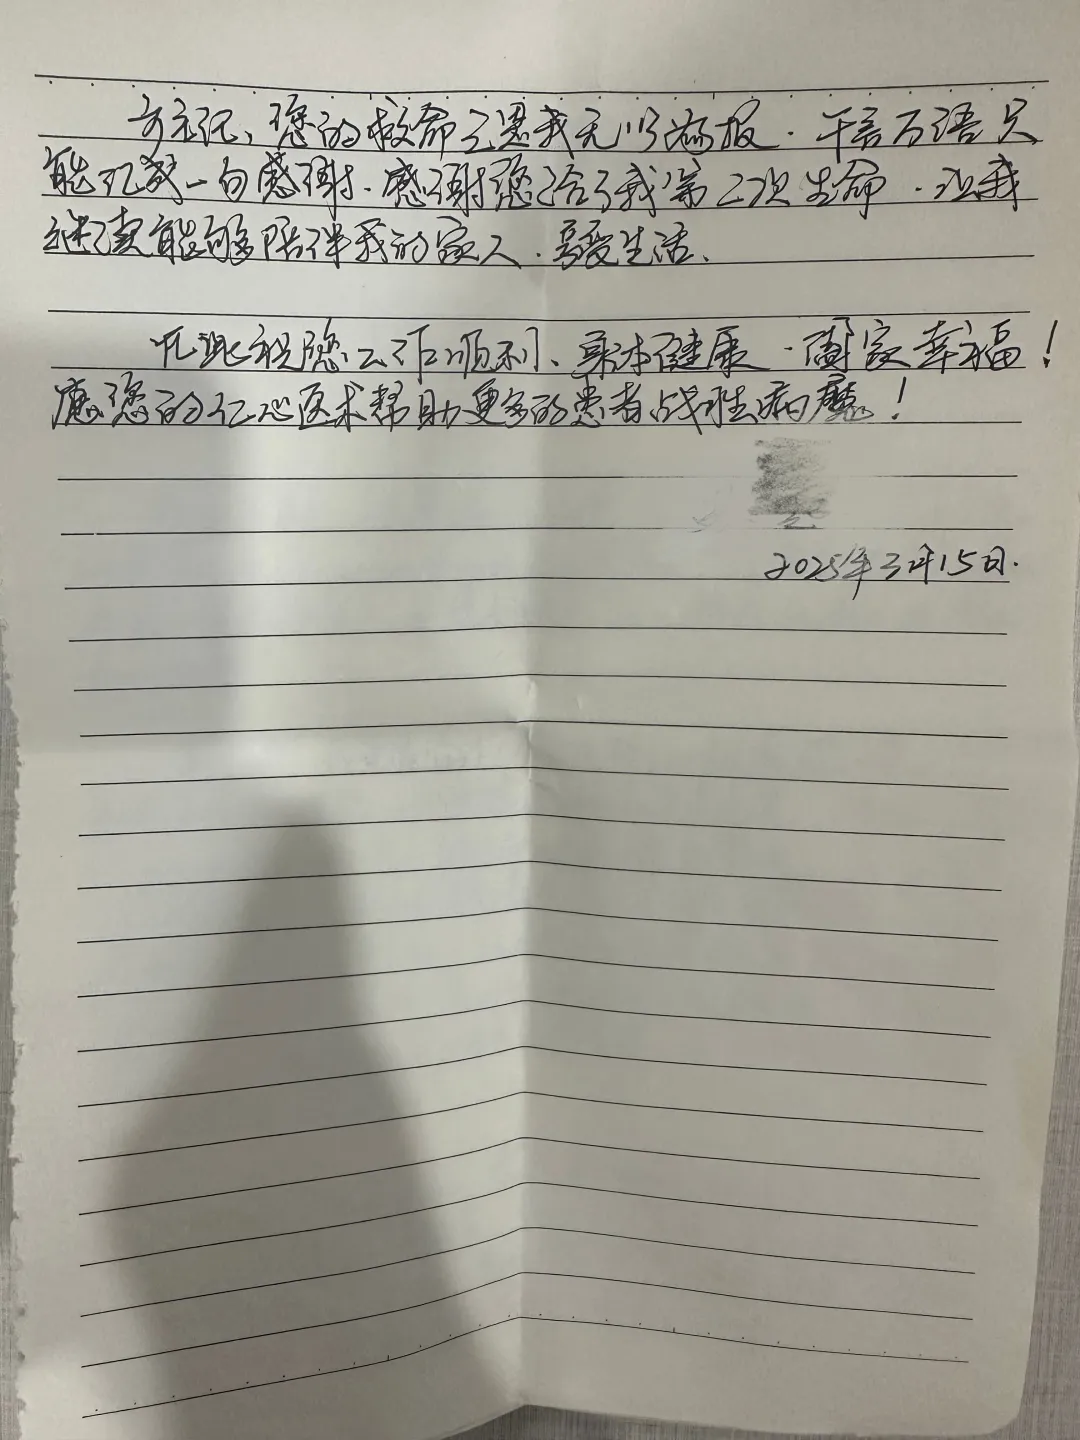 方主记、您的救命之恩我无以为报.千言万语只
能汇成一句感谢.感谢您给了我第二次生命.让我
继续能够陪伴我的家人.享受生活、
在此祝愿您工作顺利、身体健康.阖家幸福!
愿您的仁心医术帮助更多的患者战胜病魔!
2025年3月15日.